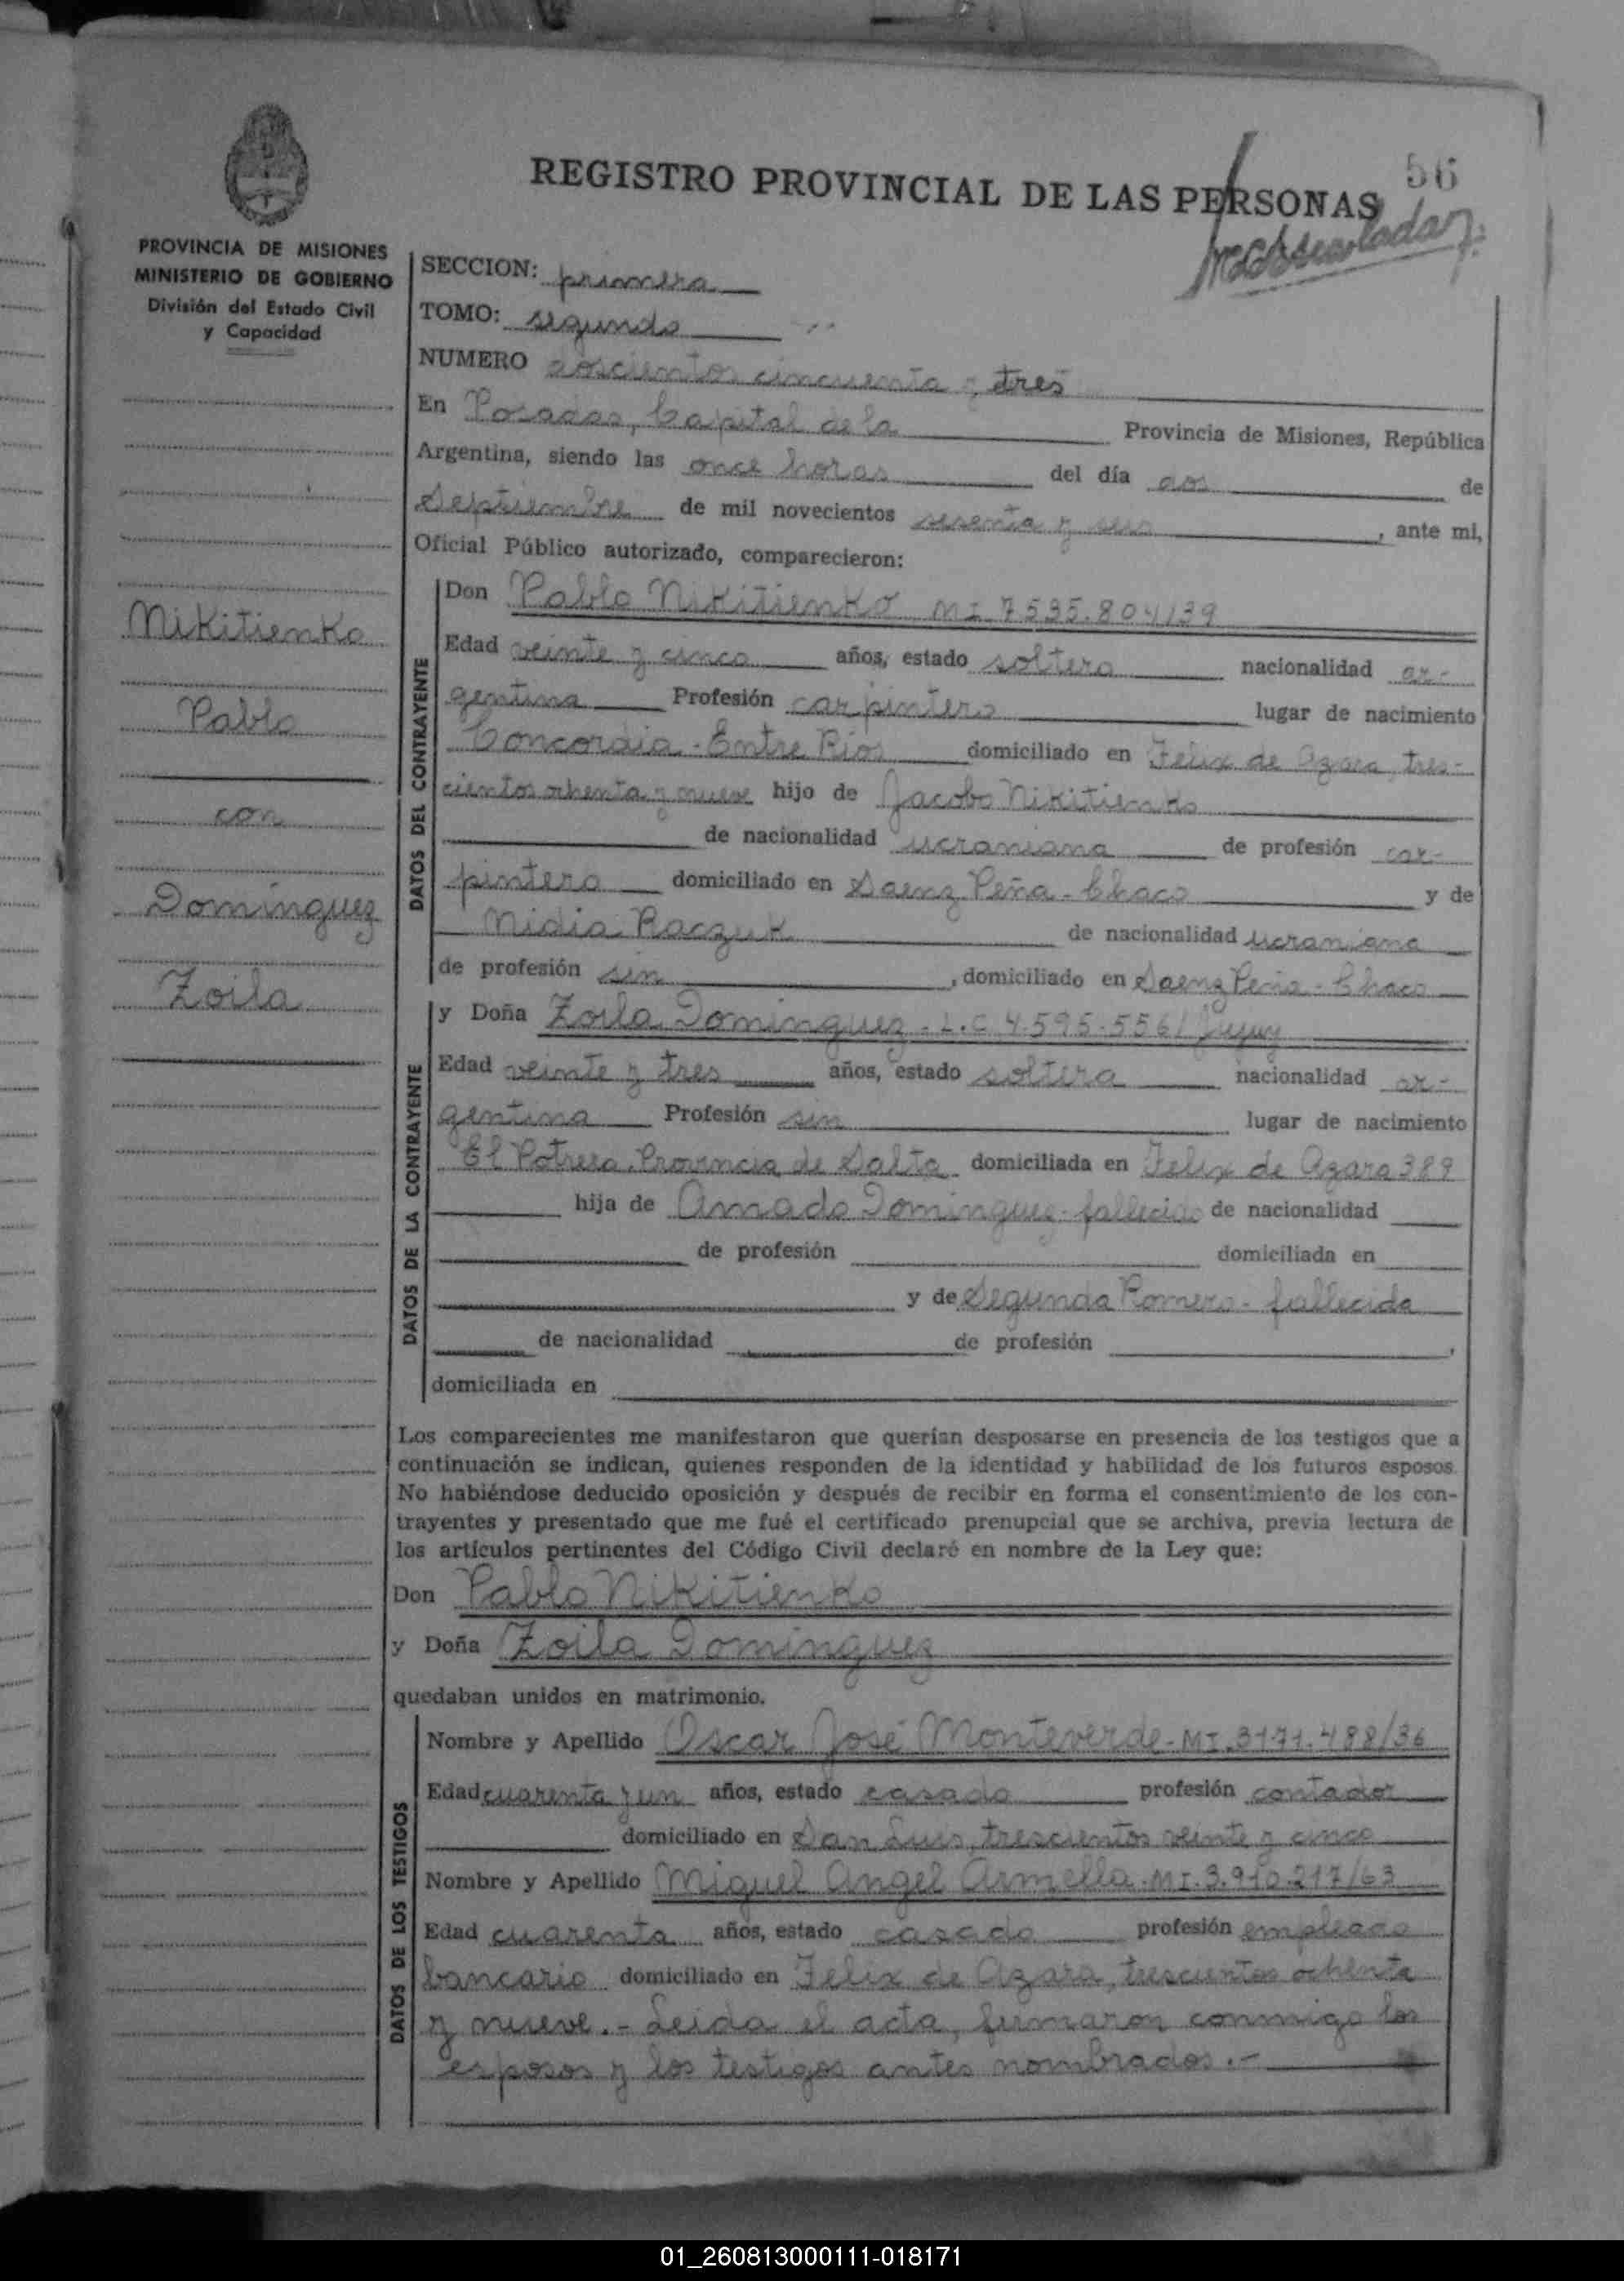 56
REGISTRO PROVINCIAL DE LAS PERSONAS
PROVINCIA DE MISIONES
MINISTERIO DE GOBIERNO
División del Estado Civil
y Capacidad
SECCION: primera
TOMO: segundo
NUMERO doscientos cincuenta y tres
En Posadas, Capital de la Provincia de Misiones, República
Argentina, siendo las once horas del día dos de
Septiembre de mil novecientos sesenta y seis, ante mi,
Oficial Público autorizado, comparecieron:
Nikitienko
Pablo
con
Dominguez
Zoila
DATOS DEL CONTRAYENTE
Don Pablo Nikitienko MI. 7535.804/39
Edad veinte y cinco años, estado soltero nacionalidad ar-
gentina Profesión carpintero lugar de nacimiento
Concordia - Entre Rios domiciliado en Felix de Azara, tres-
cientos ochenta y nueve hijo de Jacobo Nikitienko
de nacionalidad ucraniana de profesión car-
pintero domiciliado en Saenz Peña - Chaco y de
Nidia Raczuk de nacionalidad ucraniana
de profesión sin, domiciliado en Saenz Peña - Chaco
DATOS DE LA CONTRAYENTE
y Doña Zoila Dominguez - L.C. 4.595.556/Jujuy
Edad veinte y tres años, estado soltera nacionalidad ar-
gentina Profesión sin lugar de nacimiento
El Potrero, Provincia de Salta domiciliada en Felix de Azara 389
hija de Amado Dominguez - fallecido de nacionalidad
de profesión domiciliada en
y de Segunda Romero - fallecida
de nacionalidad de profesión ,
domiciliada en
Los comparecientes me manifestaron que querían desposarse en presencia de los testigos que a
continuación se indican, quienes responden de la identidad y habilidad de los futuros esposos.
No habiéndose deducido oposición y después de recibir en forma el consentimiento de los con-
trayentes y presentado que me fué el certificado prenupcial que se archiva, previa lectura de
los artículos pertinentes del Código Civil declaré en nombre de la Ley que:
Don Pablo Nikitienko
y Doña Zoila Dominguez
quedaban unidos en matrimonio.
DATOS DE LOS TESTIGOS
Nombre y Apellido Oscar José Monteverde - MI. 3171.488/36
Edad cuarenta y un años, estado casado profesión contador
domiciliado en San Luis, trescientos veinte y cinco
Nombre y Apellido Miguel Angel Armella - MI. 3.910.217/63
Edad cuarenta años, estado casado profesión empleado
bancario domiciliado en Felix de Azara, trescientos ochenta
y nueve. - Leida el acta, firmaron conmigo los
esposos y los testigos antes nombrados. -
01_260813000111-018171